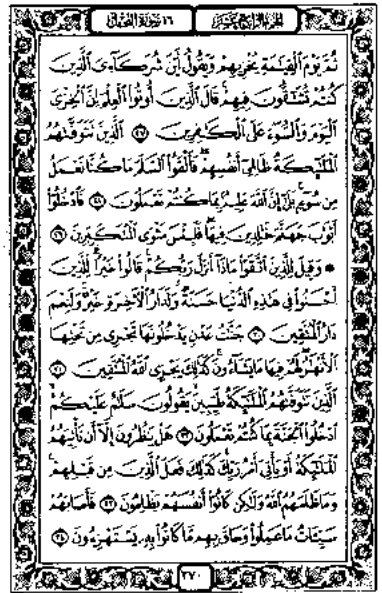 الجزء الرابع عشر ١٦ سورة النحل
ثُمَّ يَوْمَ ٱلْقِيَٰمَةِ يُخْزِيهِمْ وَيَقُولُ أَيْنَ شُرَكَآءِىَ ٱلَّذِينَ
كُنتُمْ تُشَٰٓقُّونَ فِيهِمْ ۚ قَالَ ٱلَّذِينَ أُوتُوا۟ ٱلْعِلْمَ إِنَّ ٱلْخِزْىَ
ٱلْيَوْمَ وَٱلسُّوٓءَ عَلَى ٱلْكَٰفِرِينَ ٢٧ ٱلَّذِينَ تَتَوَفَّىٰهُمُ
ٱلْمَلَٰٓئِكَةُ ظَالِمِىٓ أَنفُسِهِمْ ۖ فَأَلْقَوُا۟ ٱلسَّلَمَ مَا كُنَّا نَعْمَلُ
مِن سُوٓءٍۭ ۚ بَلَىٰٓ إِنَّ ٱللَّهَ عَلِيمٌۢ بِمَا كُنتُمْ تَعْمَلُونَ ٢٨ فَٱدْخُلُوٓا۟
أَبْوَٰبَ جَهَنَّمَ خَٰلِدِينَ فِيهَا ۖ فَلَبِئْسَ مَثْوَى ٱلْمُتَكَبِّرِينَ ٢٩
۞ وَقِيلَ لِلَّذِينَ ٱتَّقَوْا۟ مَاذَآ أَنزَلَ رَبُّكُمْ ۚ قَالُوا۟ خَيْرًا ۗ لِّلَّذِينَ
أَحْسَنُوا۟ فِى هَٰذِهِ ٱلدُّنْيَا حَسَنَةٌ ۚ وَلَدَارُ ٱلْءَاخِرَةِ خَيْرٌ ۚ وَلَنِعْمَ
دَارُ ٱلْمُتَّقِينَ ٣٠ جَنَّٰتُ عَدْنٍ يَدْخُلُونَهَا تَجْرِى مِن تَحْتِهَا
ٱلْأَنْهَٰرُ ۖ لَهُمْ فِيهَا مَا يَشَآءُونَ ۚ كَذَٰلِكَ يَجْزِى ٱللَّهُ ٱلْمُتَّقِينَ ٣١
ٱلَّذِينَ تَتَوَفَّىٰهُمُ ٱلْمَلَٰٓئِكَةُ طَيِّبِينَ ۙ يَقُولُونَ سَلَٰمٌ عَلَيْكُمُ
ٱدْخُلُوا۟ ٱلْجَنَّةَ بِمَا كُنتُمْ تَعْمَلُونَ ٣٢ هَلْ يَنظُرُونَ إِلَّآ أَن تَأْتِيَهُمُ
ٱلْمَلَٰٓئِكَةُ أَوْ يَأْتِىَ أَمْرُ رَبِّكَ ۚ كَذَٰلِكَ فَعَلَ ٱلَّذِينَ مِن قَبْلِهِمْ ۚ
وَمَا ظَلَمَهُمُ ٱللَّهُ وَلَٰكِن كَانُوٓا۟ أَنفُسَهُمْ يَظْلِمُونَ ٣٣ فَأَصَابَهُمْ
سَيِّـَٔاتُ مَا عَمِلُوا۟ وَحَاقَ بِهِم مَّا كَانُوا۟ بِهِۦ يَسْتَهْزِءُونَ ٣٤
٢٧٠